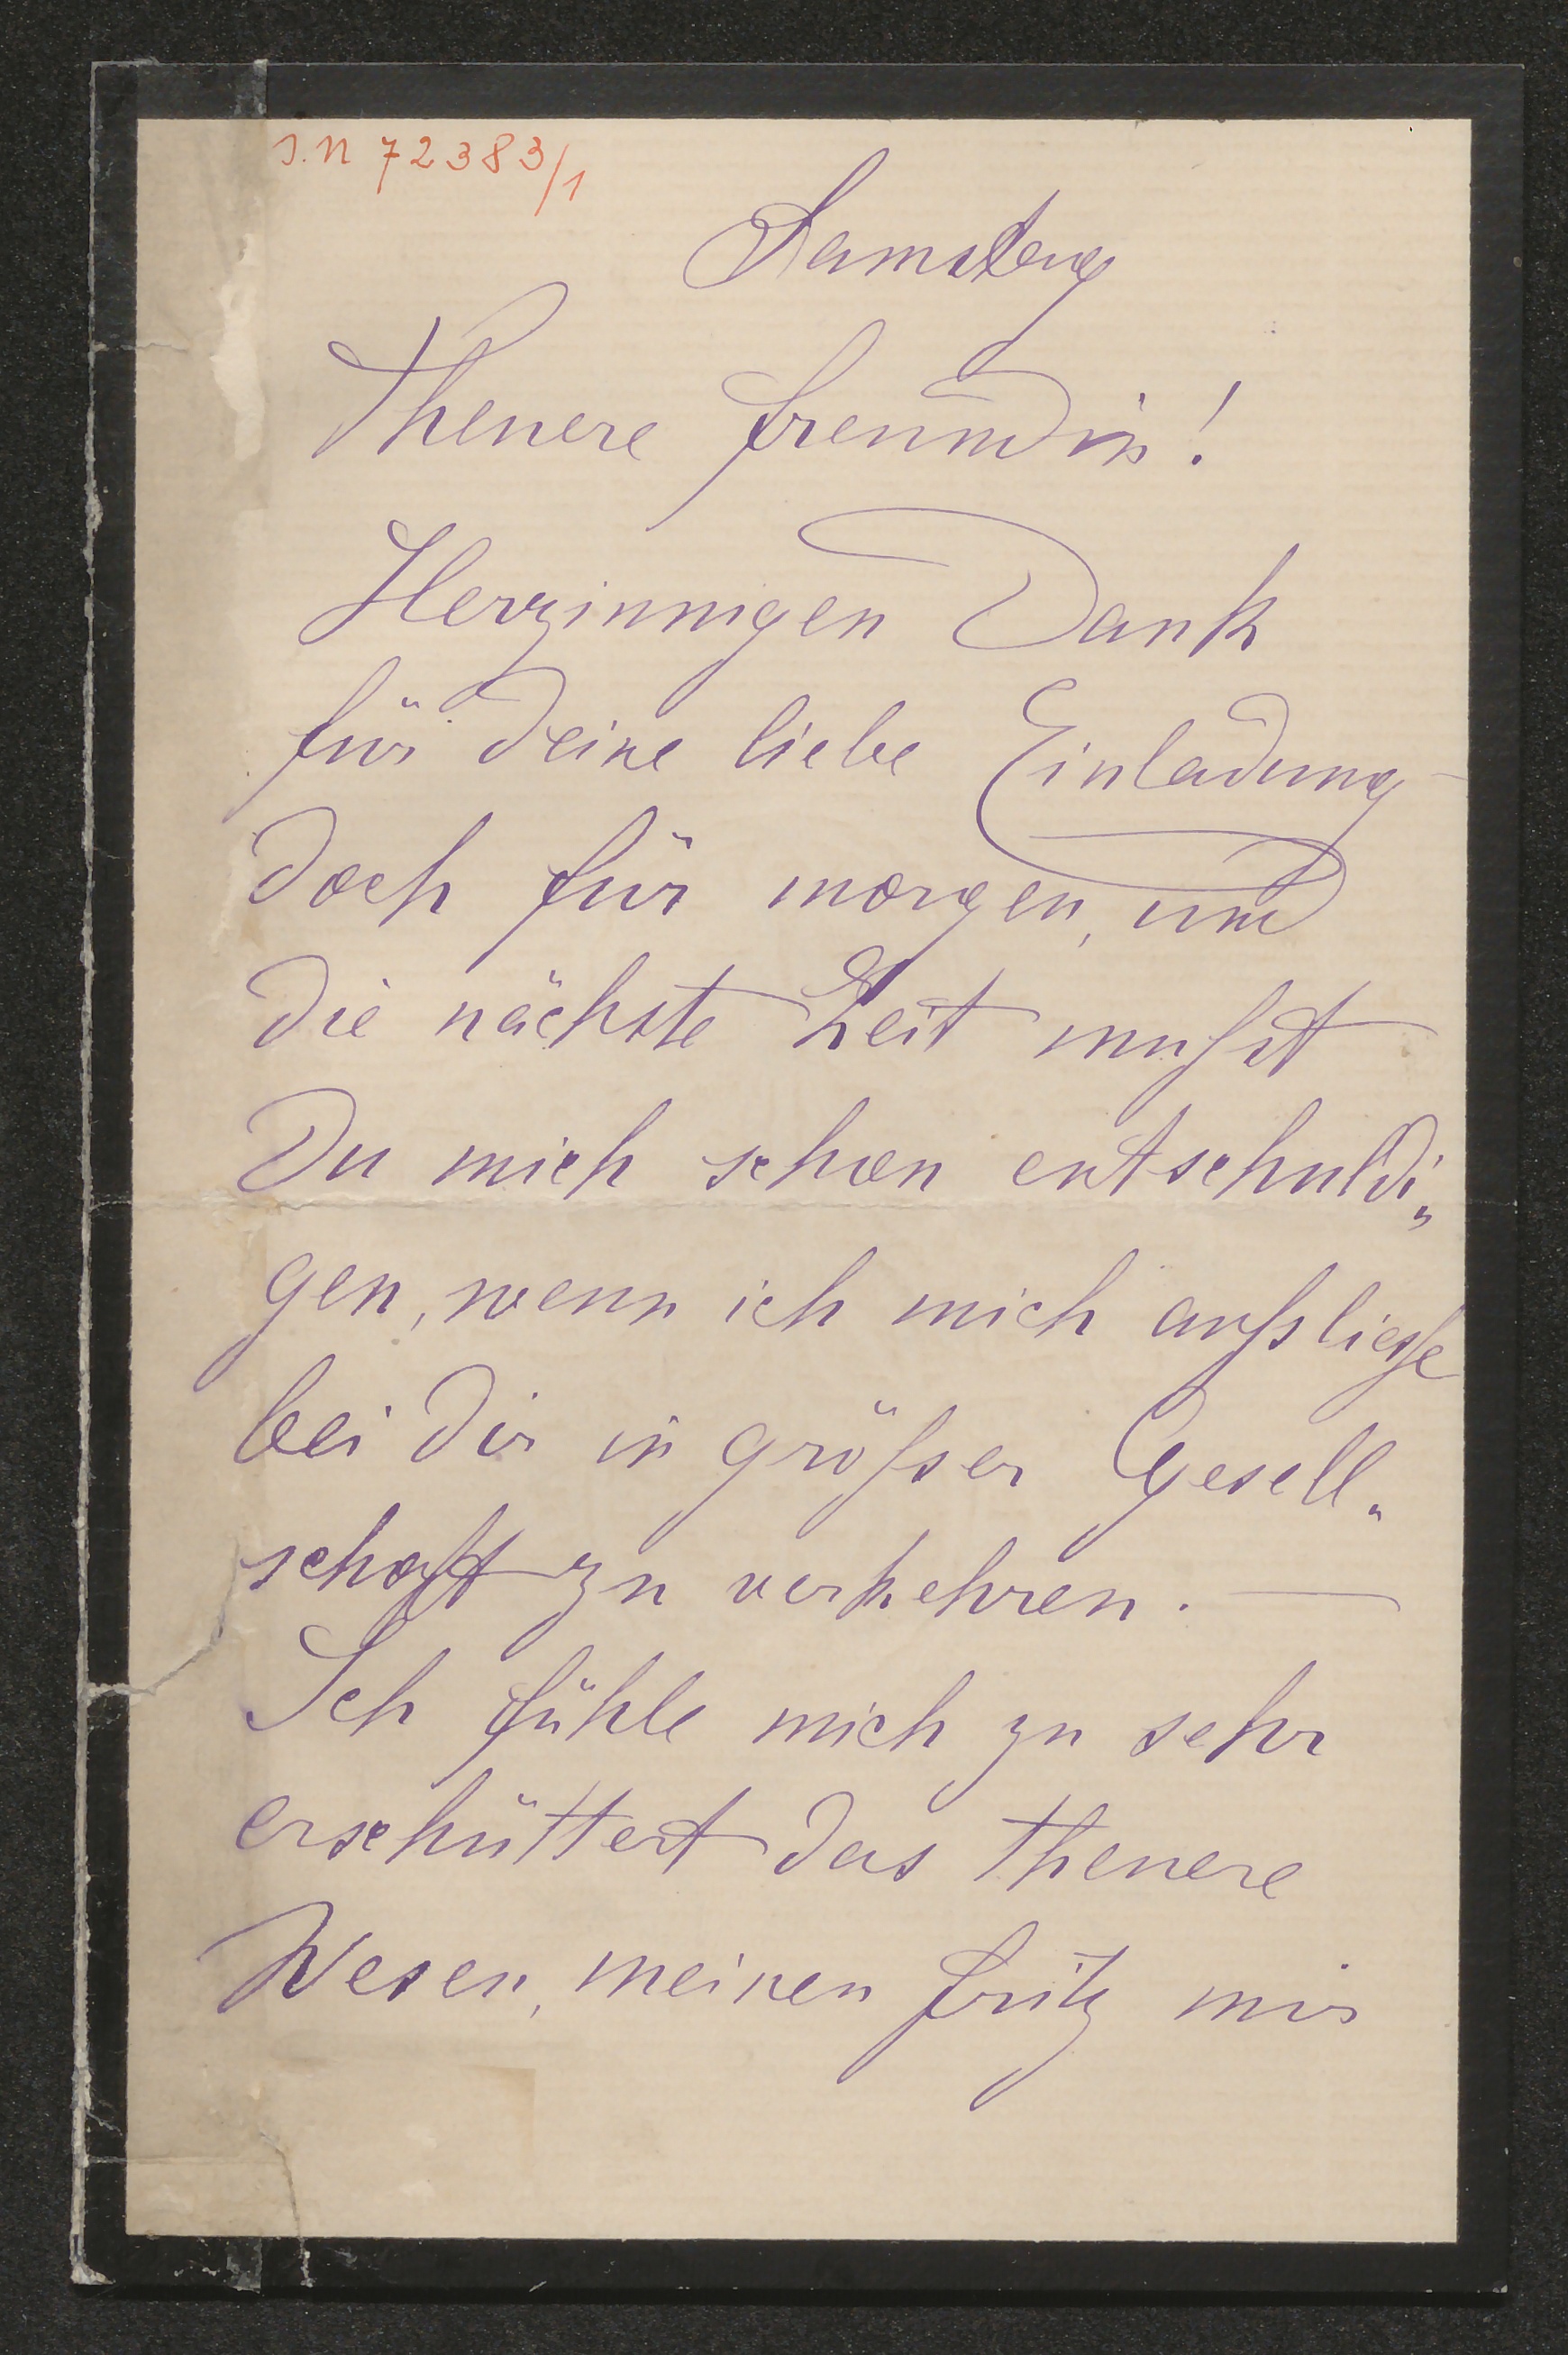 I.N 72383/1
Samstag
Theuere Freundin!
Herzinnigen Dank
für deine liebe Einladung –
doch für morgen, und
die nächste Zeit mußt
Du mich schon entschuldi„
gen, wenn ich mich
bei dir in größer Gesell„
schaft zu verkehren. —
Ich fühle mich zu sehr
erschüttert das theuere
Wesen, meinen Fritz mir